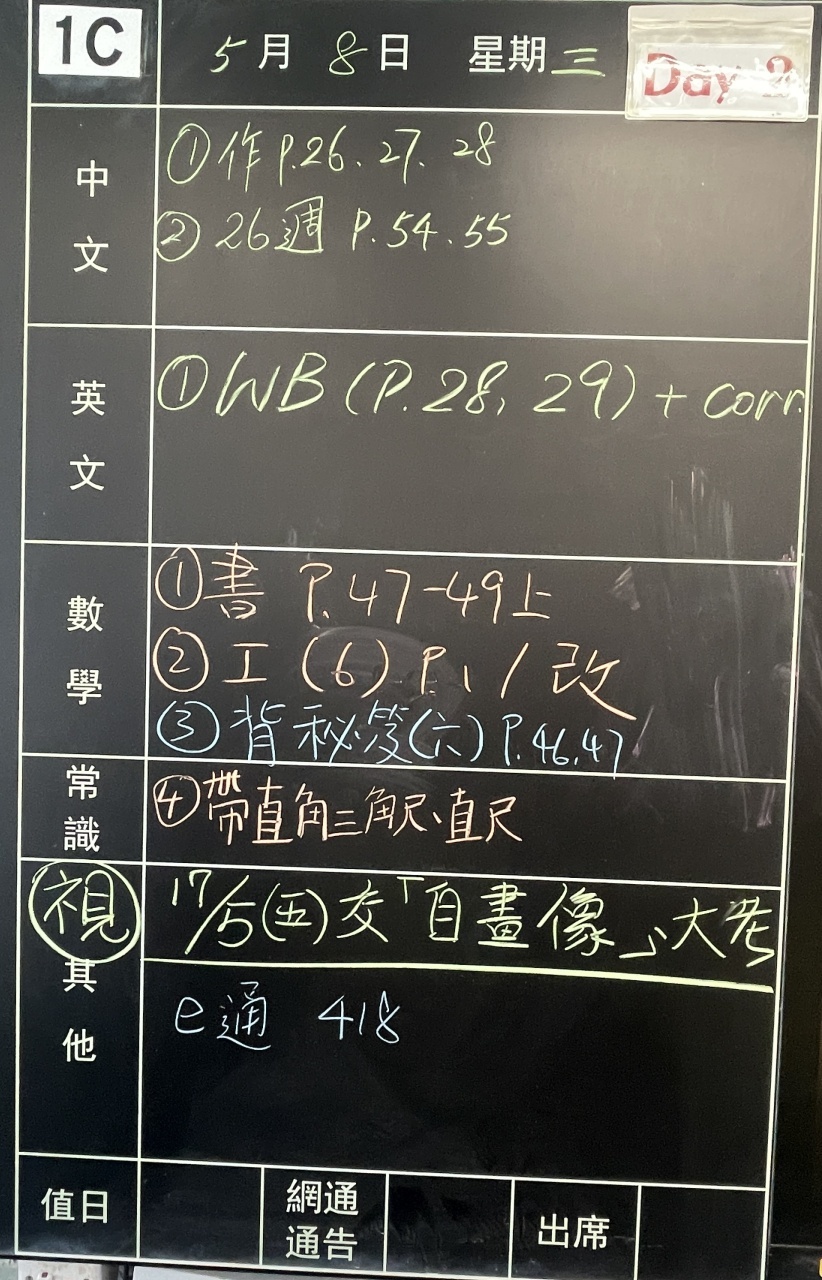 1C 5月8日 星期三 Day 2
中文
①作P.26.27.28
②26週 P.54.55
英文
①WB (P.28, 29) + corr.
數學
①書 P.47-49上
②工(6)P.1/改
③背秘笈(六)P.46.47
常識
④帶直角三角尺、直尺
視
17/5(五)交「自畫像」大考
其他
e通 418
值日 網通通告 出席